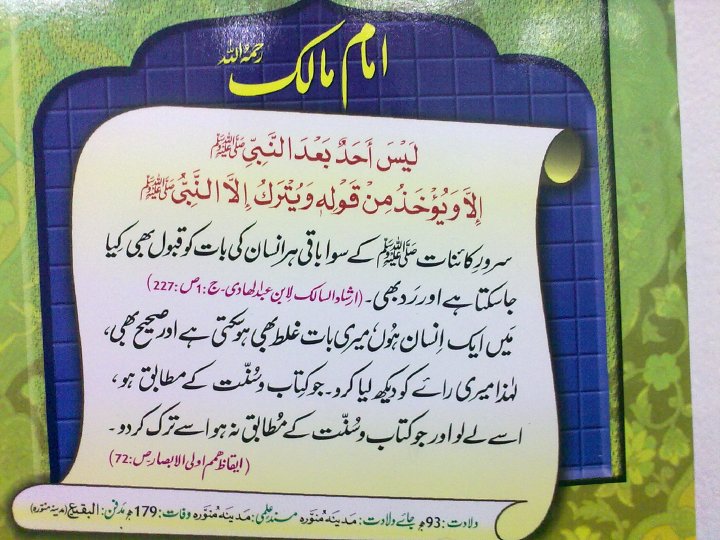 امام مالک رحمہُ اللہ
لَيْسَ أَحَدٌ بَعْدَ النَّبِيِّ ﷺ
إِلَّا وَيُؤْخَذُ مِنْ قَوْلِهِ وَيُتْرَكُ إِلَّا النَّبِيُّ ﷺ
سرورِ کائنات ﷺ کے سوا باقی ہر انسان کی بات کو قبول بھی کیا
جا سکتا ہے اور رَد بھی۔ (ارشاد السالک لِابن عبدالھادی۔ ج:1ص:227)
مَیں ایک اِنسان ہُوں میری بات غلط بھی ہو سکتی ہے اور صحیح بھی،
لہٰذا میری رائے کو دیکھ لیا کرو۔ جو کِتاب و سُنّت کے مطابق ہو،
اسے لے لو اور جو کتاب و سُنّت کے مُطابق نہ ہو اسے ترک کر دو۔
(ایقاظ ھمم اولی الابصار ص:72)
ولادت:93ھ جائے ولادت: مَدینہ مُنوّرہ مسندِ علمی: مَدینہ مُنوّرہ وفات:179ھ مَدفن: البقیع (مدینہ منوّرہ)